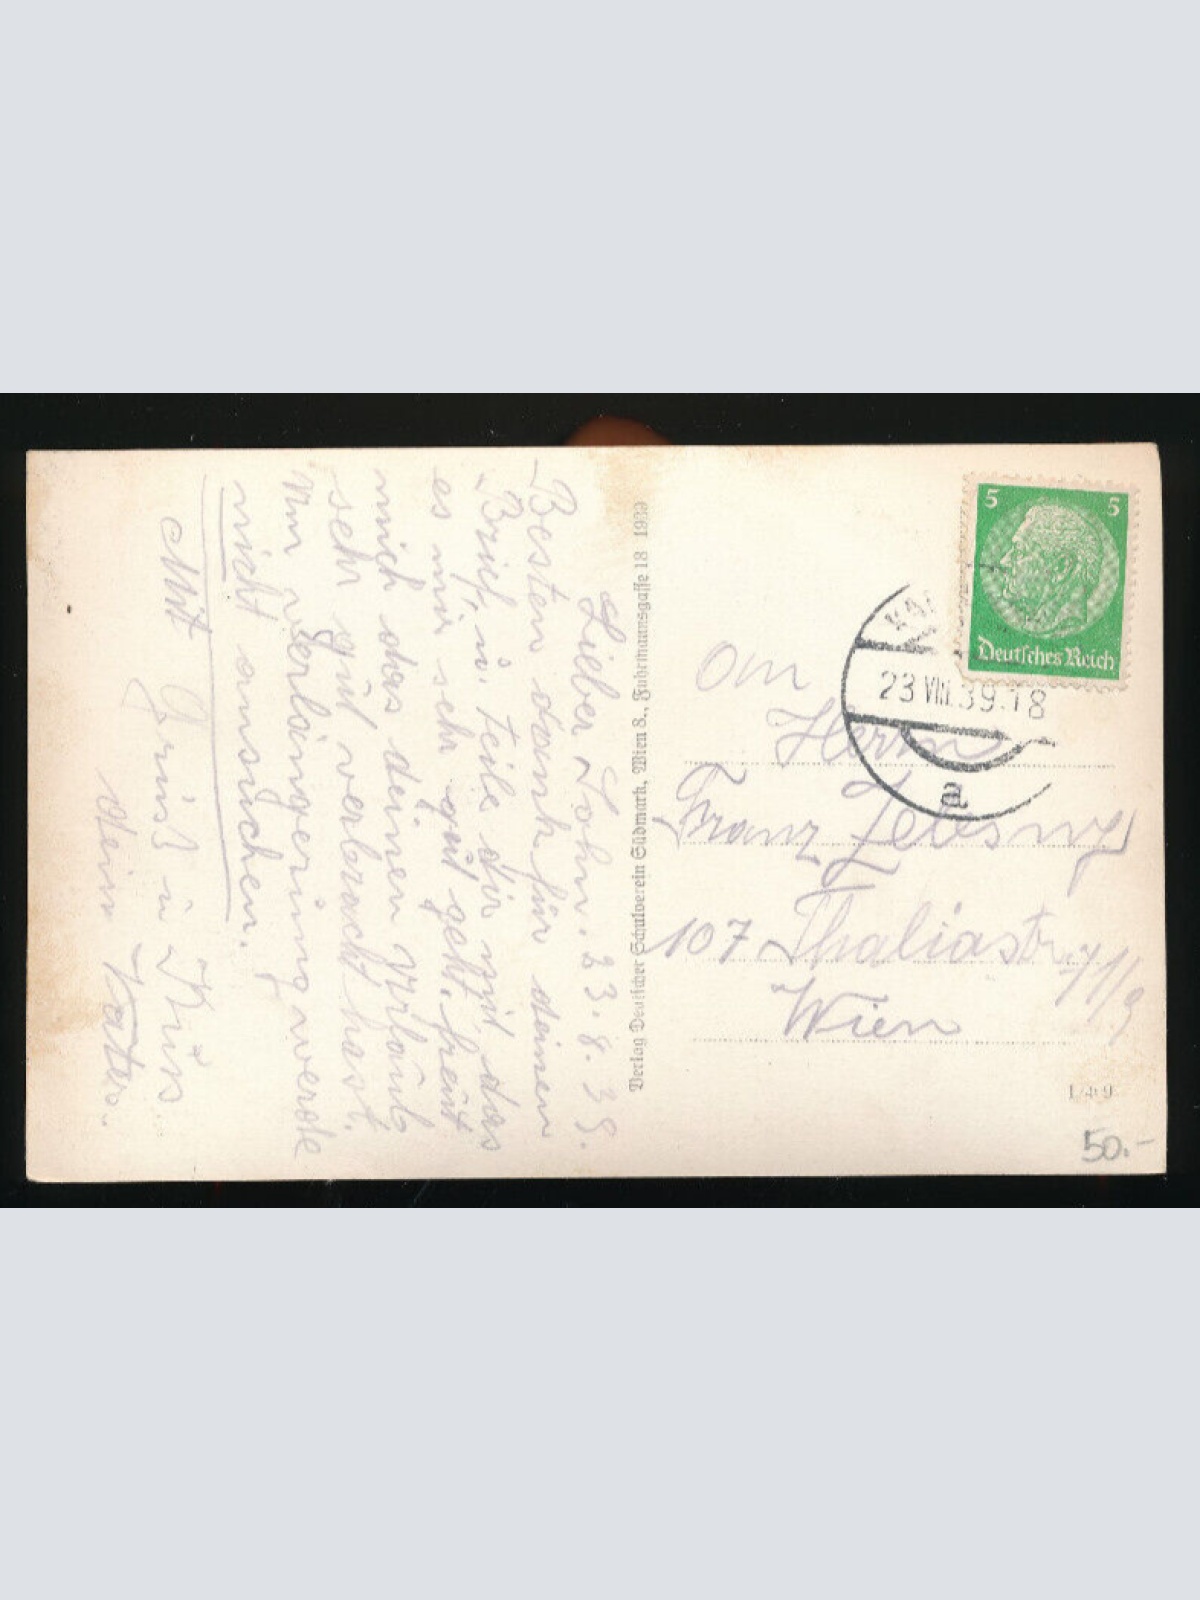 Lieber Sohn. 23.8.39.
Besten dank für deinen
Brief, u. teile dir mit das
es mir sehr gut geht, freut
mich das deinen Urlaub
sehr gut verbracht hast.
Um Verlängerung werde
nicht ansuchen.
Mit Gruß u Kuss
dein Vater.
Verlag Deutscher Schulverein Südmark, Wien 8., Fuhrmannsgasse 18 1939
5 5
Deutsches Reich
23 VIII.39.18
a
An
Herrn
Franz Zelesny
107 Thaliastr.
Wien
L 49
50.-